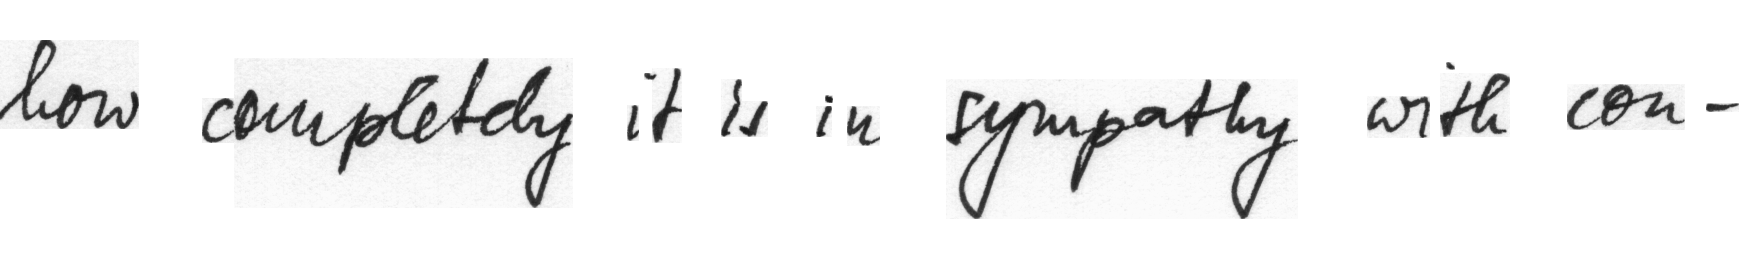 how completely it is in sympathy with con-